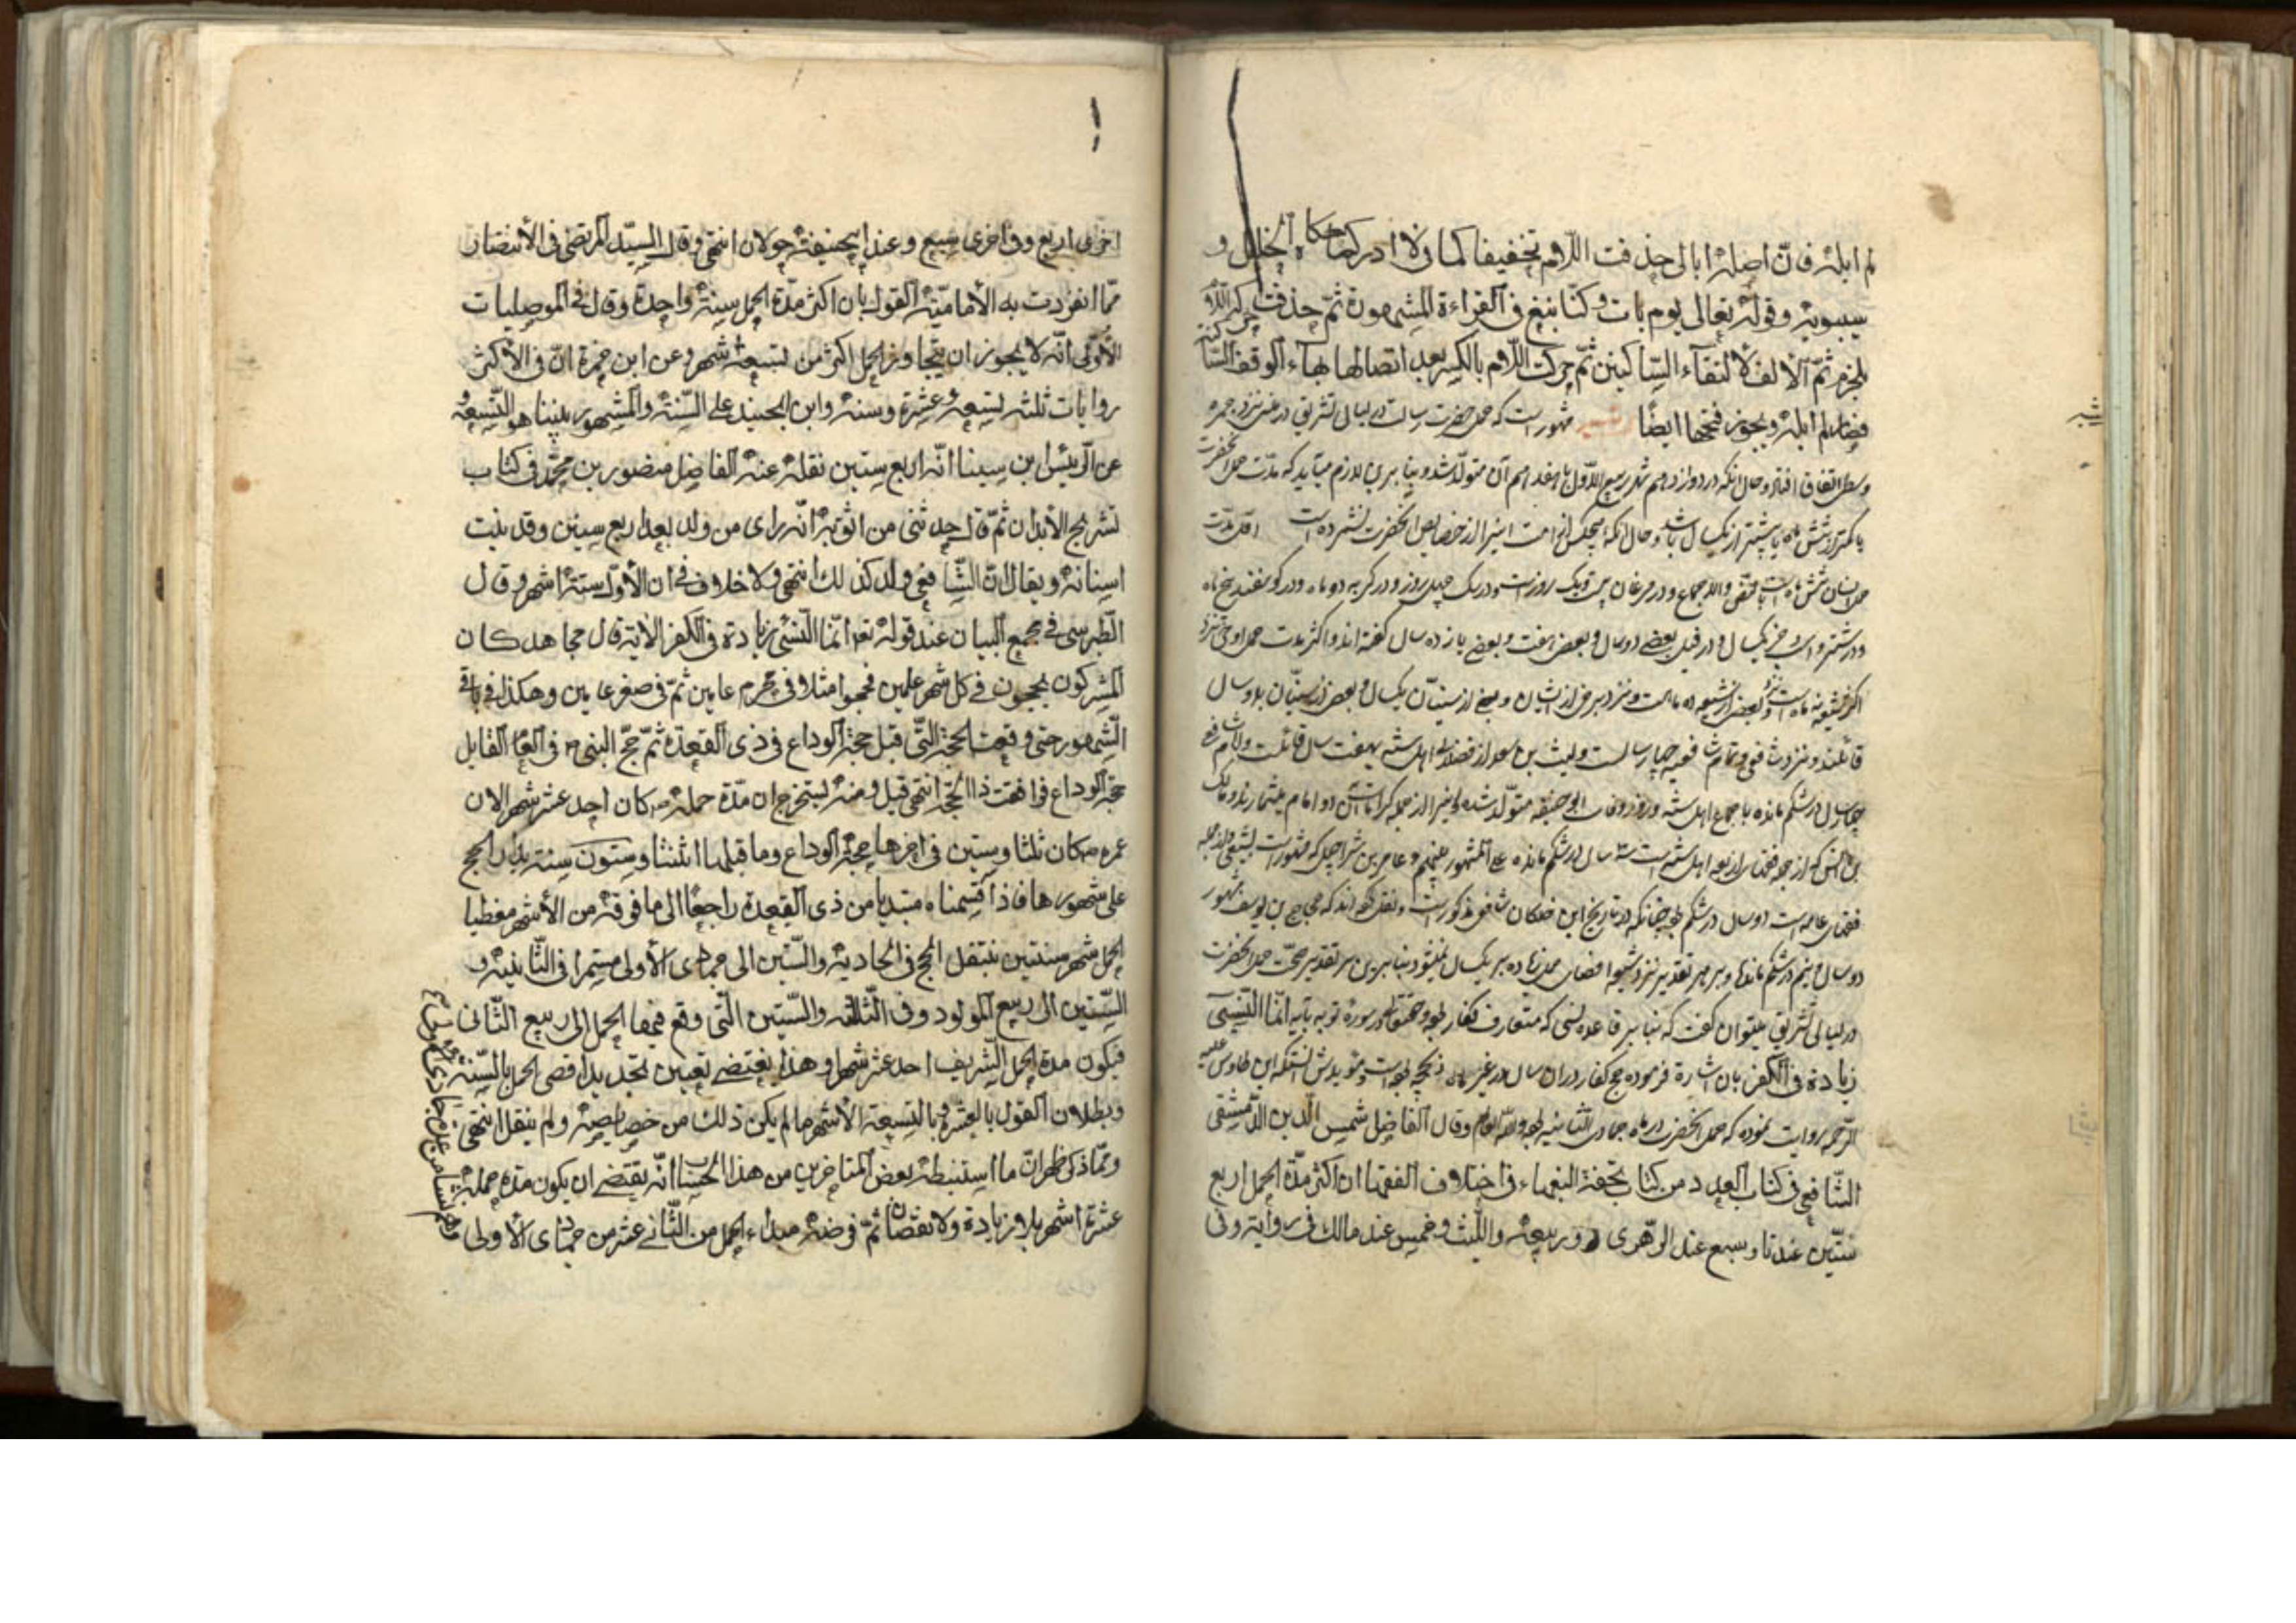 لم ابله فانّ اصله ابالى حذفت اللّام تخفيفا كما فى لا ادر كما حكاه الخليل و
سيبويه وقوله تعالى يوم يات و كنّا نبغ فى القراءة المشهورة ثمّ حذفت حركة اللّام
للجزم ثمّ الألف لالتقاء السّاكنين ثمّ حركت اللّام بالكسر بعد اتصالها بهاء الوقف السّاكنة
فصار لم ابله ويجوز فتحها ايضًا مشهور است كه حمل حضرت رسالت در ليالى تشريق در منى نزد جمره
وسطى اتفاق افتاد وحال آنكه در دوازدهم شهر ربيع الاوّل يا هفدهم آن متولّد شد و بنابرين لازم ميآيد كه مدّت حمل آنحضرت
يا كمتر از شش ماه يا بيشتر از يكسال باشد وحال آنكه هيچكس از امت اينرا از خصايص آنحضرت نشمرده است اقل مدّت
حمل انسان شش ماه است و در مرغان بيست و يك روز است و در سگ چهل روز و در گربه دو ماه و در گوسفند پنج ماه
و در شتر و اسب و خر يكسال و در فيل بعضى دو سال و بعضى هفت و بعضى يازده سال گفته‌اند و اكثر مدت حمل آدمى نزد
اكثر شيعه نه ماه است و نزد بعضى از شيعه ده ماهست و نزد برخى از ايشان و بعضى از سنيّان يكسال و بعضى از سنيّان بدو سال
قائلند و نزد شافعى و تمام شافعيه چهار سالست و ليث بن سعد از فضلاى اهل سنّه بهفت سال قائلست و امام شافعى
چهار سال در شكم مانده باجماع اهل سنّه و روز وفات ابو حنيفه متولّد شده و اينرا از جمله كرامات اين دو امام ميشمارند و مالك
بن انس كه از جمله فقهاى اربعه اهل سنّه است سه سال در شكم مانده على المشهور بينهم و عامر بن شراحيل كه مشهور است بشعبى و از جمله
فقهاى عامه است دو سال در شكم بوده چنانكه در تاريخ ابن خلكان شافعى مذكور است و نقل كرده‌اند كه حجاج بن يوسف مشهور
دو سال و نيم در شكم مانده و بر هر تقدير نزد شيعه اقصاى حمل زياده بر يكسال نميشود بنابرين بر تقدير صحّت حمل آنحضرت
در ليالى تشريق ميتوان گفت كه بنا بر قاعده نسى كه متعارف كفار بوده و حقتعالى در سورهٔ توبه بآيه انّما النّسيى
زيادة فى الكفر بآن اشارة فرموده حج كفار در آن سال در غير ماه ذيحجّه بوده است و مؤيد اينست آنكه ابن طاوس عليه
الرّحمه روايت نموده كه حمل آنحضرت در ماه جمادى الثانيه بوده والله اعلم وقال الفاضل شمس الدّين الدّمشقى
الشّافعى فى كتاب العدد من كتاب تحفة النبهاء فى اختلاف الفقهاء ان اكثر مدّة الحمل اربع
سنين عندنا وسبع عند الزّهرى و ربيعة واللّيث وخمس عند مالك فى رواية وفى
اخرى اربع وفى اخرى سبع وعند ابيحنيفة حولان انتهى وقال السيّد المرتضى فى الأنتصار
ممّا انفردت به الأماميّة القول بان اكثر مدّة الحمل سنة واحدة وقال فى الموصليات
الأولى انّه لا يجوز ان يتجاوز الحمل اكثر من تسعة شهر وعن ابن حمزة انّ فى الأكثر
روايات ثلثه تسعة وعشرة وسنة وابن الجنيد على السّنة والمشهور بيننا هو التّسعة و
عن الرّئيس ابن سينا انّه اربع سنين نقله عنه الفاضل منصور بن محمّد فى كتاب
تشريح الأبدان ثمّ قال حدثنى من اثق به انّه راى من ولد بعد اربع سنين وقد نبت
اسنانه ويقال انّ الشّافعى ولد كذلك انتهى ولا خلاف فى ان الأوّل ستة اشهر وقال
الطّبرسى فى مجمع البيان عند قوله تعا انّما النّسئى زيادة فى الكفر الاية قال مجاهد كان
المشركون يحجون فى كل شهر عامين فحجوا مثلا فى محرم عامين ثمّ فى صفر عامين وهكذا فى باقى
الشّهور حتى وقعت الحجة الّتى قبل حجة الوداع فى ذى القعدة ثمّ حجّ النبى ص فى العام القابل
حجة الوداع فوافقت ذا الحجّة انتهى قيل ومنه يستخرج ان مدّة حمله ص كان احد عشر شهر الان
عمره ص كان ثلثا وستين فى اخرها حجّة الوداع وما قبلها اثنتا وستون سنة يدار الحج
على شهورها فاذا قسمناه مبتديا من ذى القعدة راجعًا الى ما فوقه من الأشهر معطيا
لكل شهر سنتين ينتقل الحج فى الحادية والسّتين الى جمادى الأولى مستمرا فى الثّانية و
السّتين الى ربيع المولود وفى الثّالثة والسّتين الّتى وقع فيها الحمل الى ربيع الثّانى
فيكون مدة الحمل الشّريف احد عشر شهرا وهذا يقتضى تعيين تحديد اقصى الحمل بالسّنة
وبطلان القول بالعشرة وبالتسعة الأشهر ما لم يكن ذلك من خصايصه ولم ينقل انتهى
وممّا ذكر ظهر انّ ما استنبطه بعض المتاخرين من هذا الحساب انّه يقتضى ان يكون مدة حمله
عشرة اشهر بلا زيادة ولا نقصان ثمّ فرضه مبداء الحمل من الثّانى عشر من جمادى الأولى